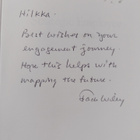 Hilkka:
Best wishes on your
engagement journey
Hope this helps with
mapping the future.